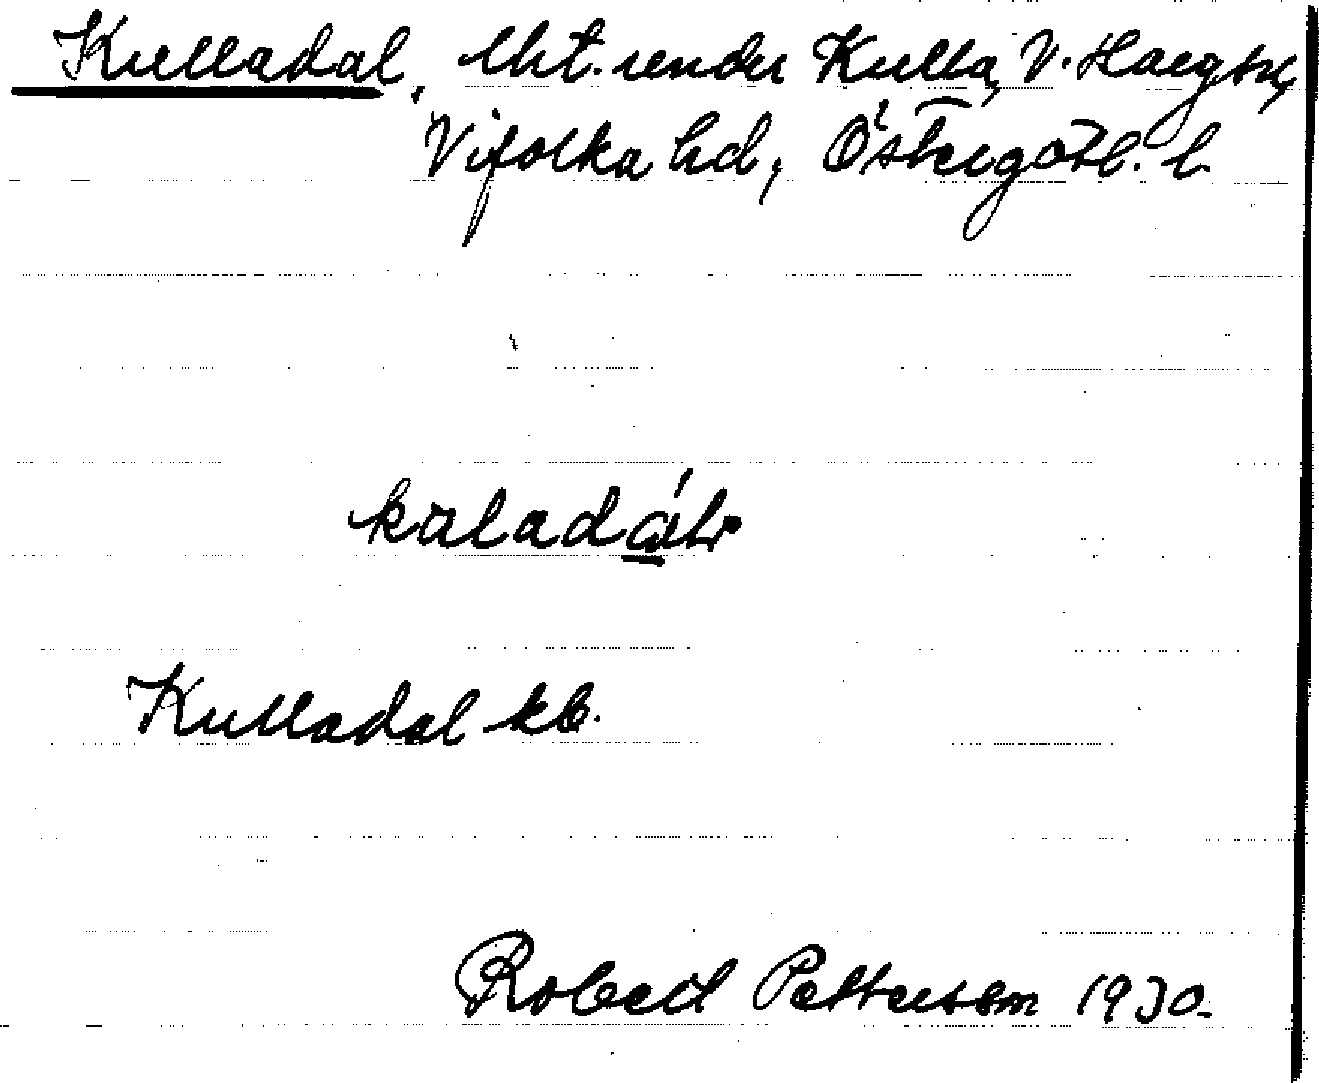 Kulladal, lht. under Kulla, V. Harg sn,
Vifolka hd, Östergötl. l.
kuladal
Kulladal kb.
Robert Pettersson 1930.